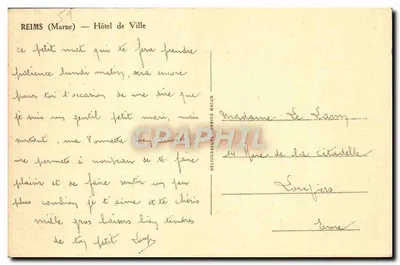 REIMS (Marne) — Hôtel de Ville
ce petit mot qui te fera prendre
patience lundi matin, sera encore
pour toi l'occasion de me dire que
je suis un gentil petit mari, mais
surtout, ma
me permets à nouveau de te faire
plaisir et de faire sentir un peu
plus combien je t'aime et te chéris
mille gros baisers bien tendres
de ton petit
HELIOGRAVURE
Madame Le
14 Rue de la Citadelle
Louviers
Eure
CPHARTIE